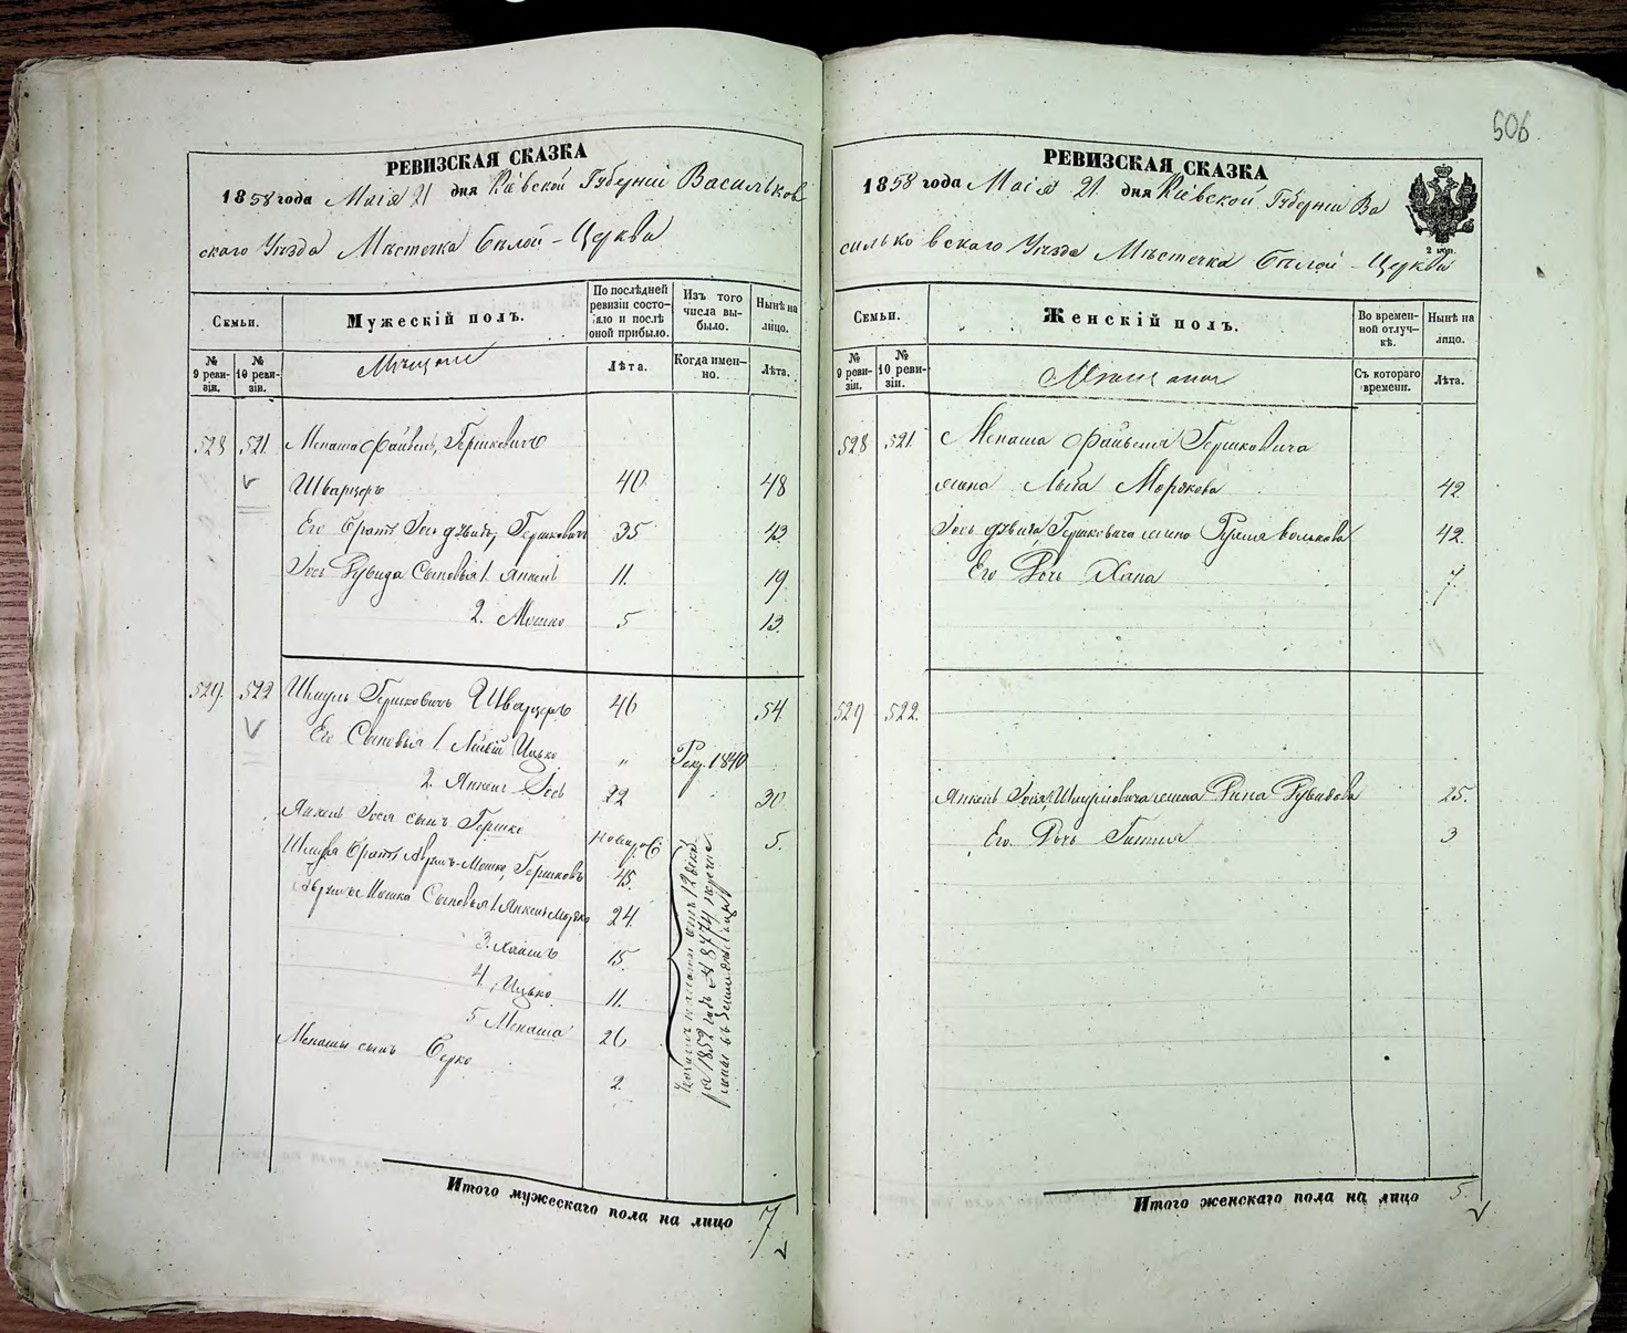 606
РЕВИЗСКАЯ СКАЗКА
1858 года Маія 21 дня Кіевской Губерніи Васильков
скаго Уѣзда Мѣстечка Бѣлой-Церкви
Семьи.
Мужескій полъ.
По послѣдней ревизіи состояло и послѣ оной прибыло.
Изъ того числа выбыло.
Нынѣ на лицо.
№ 9 ревизіи.
№ 10 ревизіи.
Мѣщане
Лѣта.
Когда именно.
Лѣта.
528 521. Менаша Файвель, Гершковичъ
Шварцеръ 40 48
Его Братъ Іось Дувидъ, Гершковичъ 35 43.
Іось Дувида Сыновья 1. Янкель 11. 19
2. Мошко 5 13.
529 522 Шмуль Гершковичъ Шварцеръ 46 54.
Его Сыновья 1. Лейби Ицько " Рекр. 1840
2. Янкель Іось 22 30
Янкель Іося сынъ Гершко новорож 5.
Шмуля Братъ Абрамъ-Мошко, Гершковъ 45.
Абрама Мошка Сыновья 1. Янкель Мордко 24.
3. Хаимъ 15.
4. Ицько 11.
5 Менаша 26
Менаши сынъ Берко 2.
отъ 12 декаб
ря 1852 года № 8774
въ
Итого мужескаго пола на лицо 7
РЕВИЗСКАЯ СКАЗКА
1858 года Маія 21 дня Кіевской Губерніи Ва
сильковскаго Уѣзда Мѣстечка Бѣлой-Церкви
2 коп.
Семьи.
Женскій полъ.
Во временной отлучкѣ.
Нынѣ на лицо.
№ 9 ревизіи.
№ 10 ревизіи.
Мѣщане
Съ котораго времени.
Лѣта.
528 521. Менаша Файвеля Гершковича
жена Лыба Мордкова 42
Іось Дувида, Гершковича жена Волькова 42.
Его Дочь Хана 7
529 522.
Янкель Іося, Шмулевича жена Рина Дувидова 25.
Его Дочь Гитля 3
Итого женскаго пола на лицо 5.